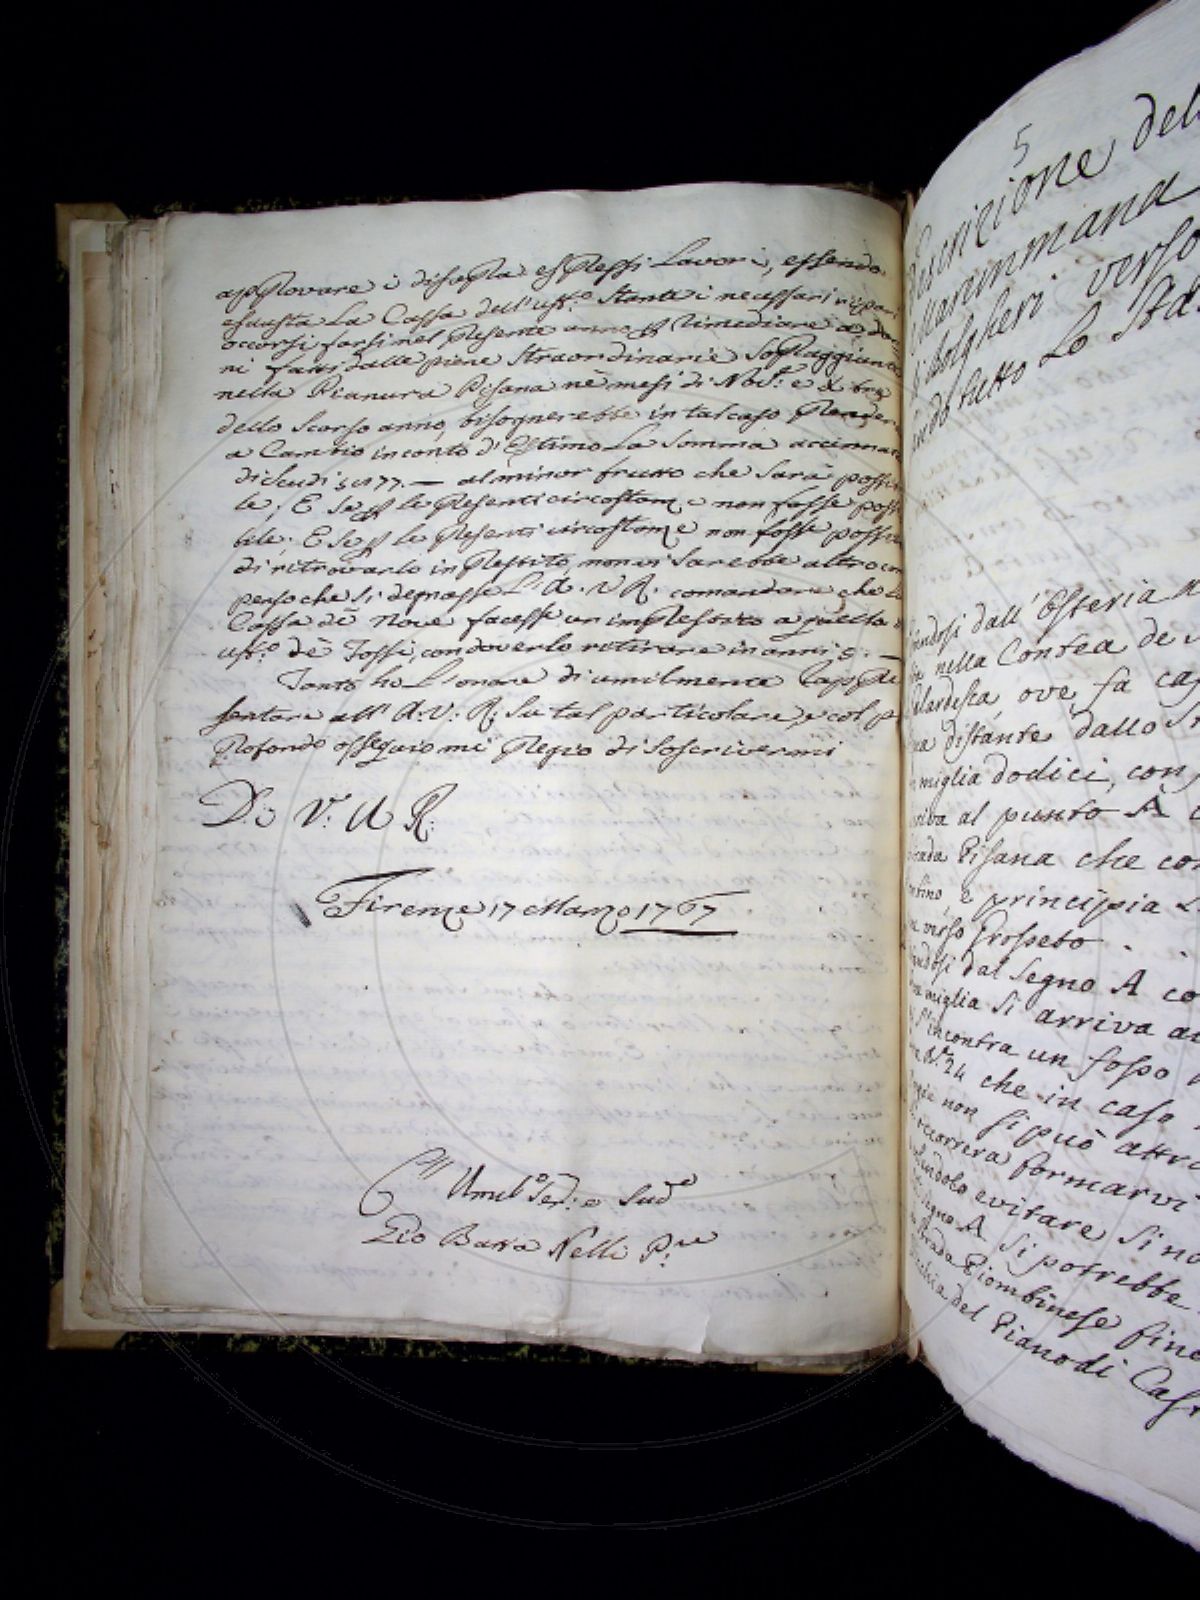 approvare i disopra espressi Lavori, essendo
esausta La Cassa dell'uff.o stante i necessari ripari
occorsi farsi nel presente anno p rimediare a dan
ni fatti dalle piene straordinarie sopraggiunte
nella Pianura Pisana nè mesi di Nov.e e X bre
dello scorso anno, bisognerebbe in tal caso prender
a Cambio in conto d'Estimo La Somma accennata
di Scudi 5177.— al minor frutto che sarà possi
le, E se p le presenti circostanze non fosse poss
bile. E se p le presenti circostanze non fosse possi
di ritrovarlo in prestito, non vi sarebbe altro com
penso che si degnasse L'A. V R. comandare che La
Cassa dè Nove facesse un imprestito a questo
uff.o dè Fossi, con doverlo ritirare in anni 5. —
Tanto ho L'onore di umilmente rappre
sentare all'A: V: R: su tal particolare, e col p
profondo ossequio mi pregio di soscrivermi
D: V: A R:
Firenze 17 Marzo 1767
Umil.o Ser.e e Sud.o
Pio Bassa Nelli P.re
5
escrizione del
Maremmana
Bolgheri verso
indo tutto Lo Sta
endosi dall'Osteria
nella Contea de
lardesca, ove fa ca
na distante dallo
miglia dodici, con
riva al punto A
rada Pisana che con
e principia L
verso Grosseto.
endosi dal Segno A co
miglia si arriva a
S'incontra un fosso
N.o 24 che in caso
non si può attra
occorrerà formarvi
volendolo evitare si
Segno A si potrebbe
rada Piombinese fino
chia del Piano di Cas